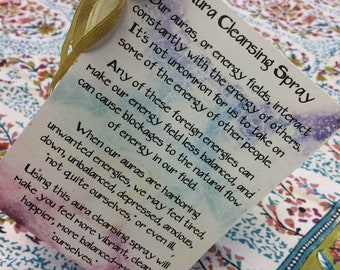 Aura Cleansing Spray
Our auras or energy fields, interact
constantly with the energy of others.
It's not uncommon for us to take on
some of the energy of other people.
Any of these foreign energies can
make our energy field less balanced and
can cause blockages to the natural flow
of energy in our field.
When our auras are harboring
unwanted energies, we may feel tired,
down, unbalanced, depressed, anxious,
not quite ourselves, or even ill.
Using this aura cleansing spray will
make you feel more vibrant, clean,
happier, more balanced,
ourselves.